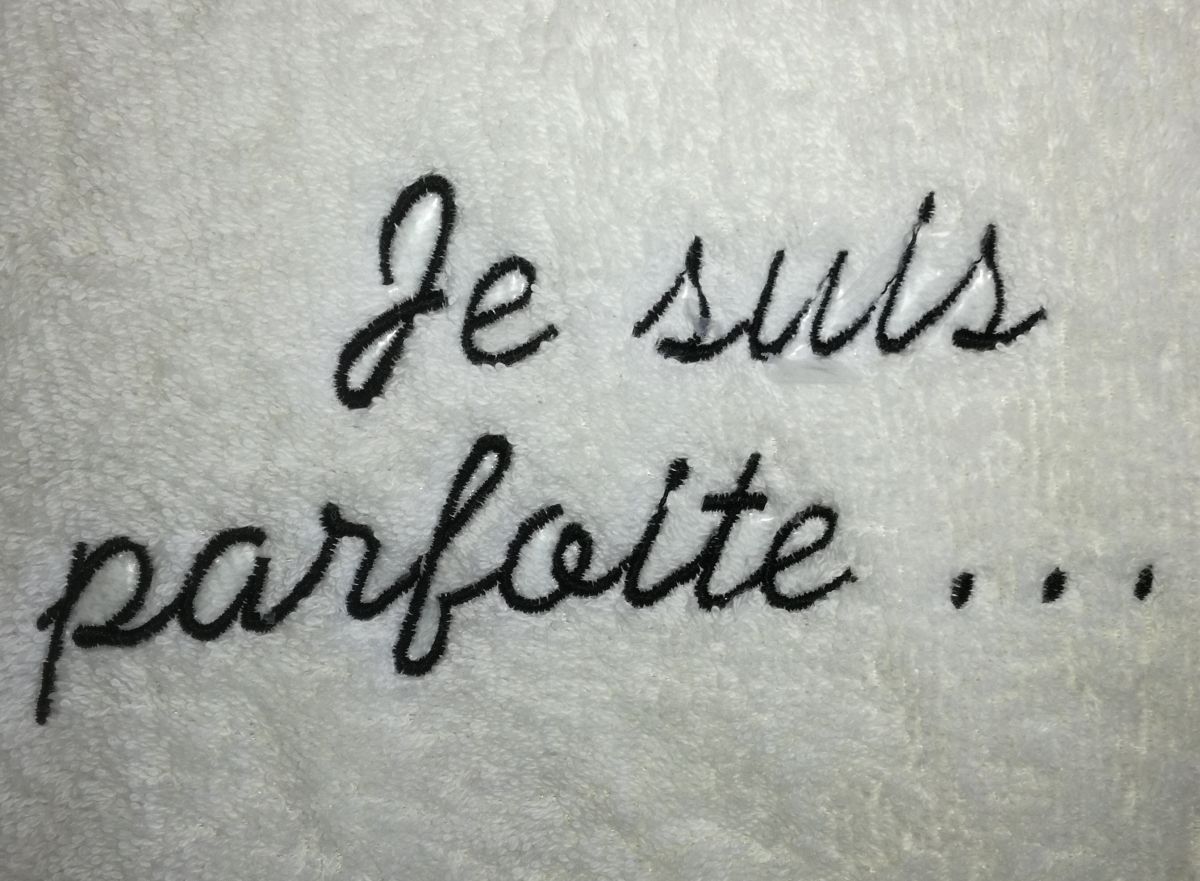 Je suis
parfoite ...